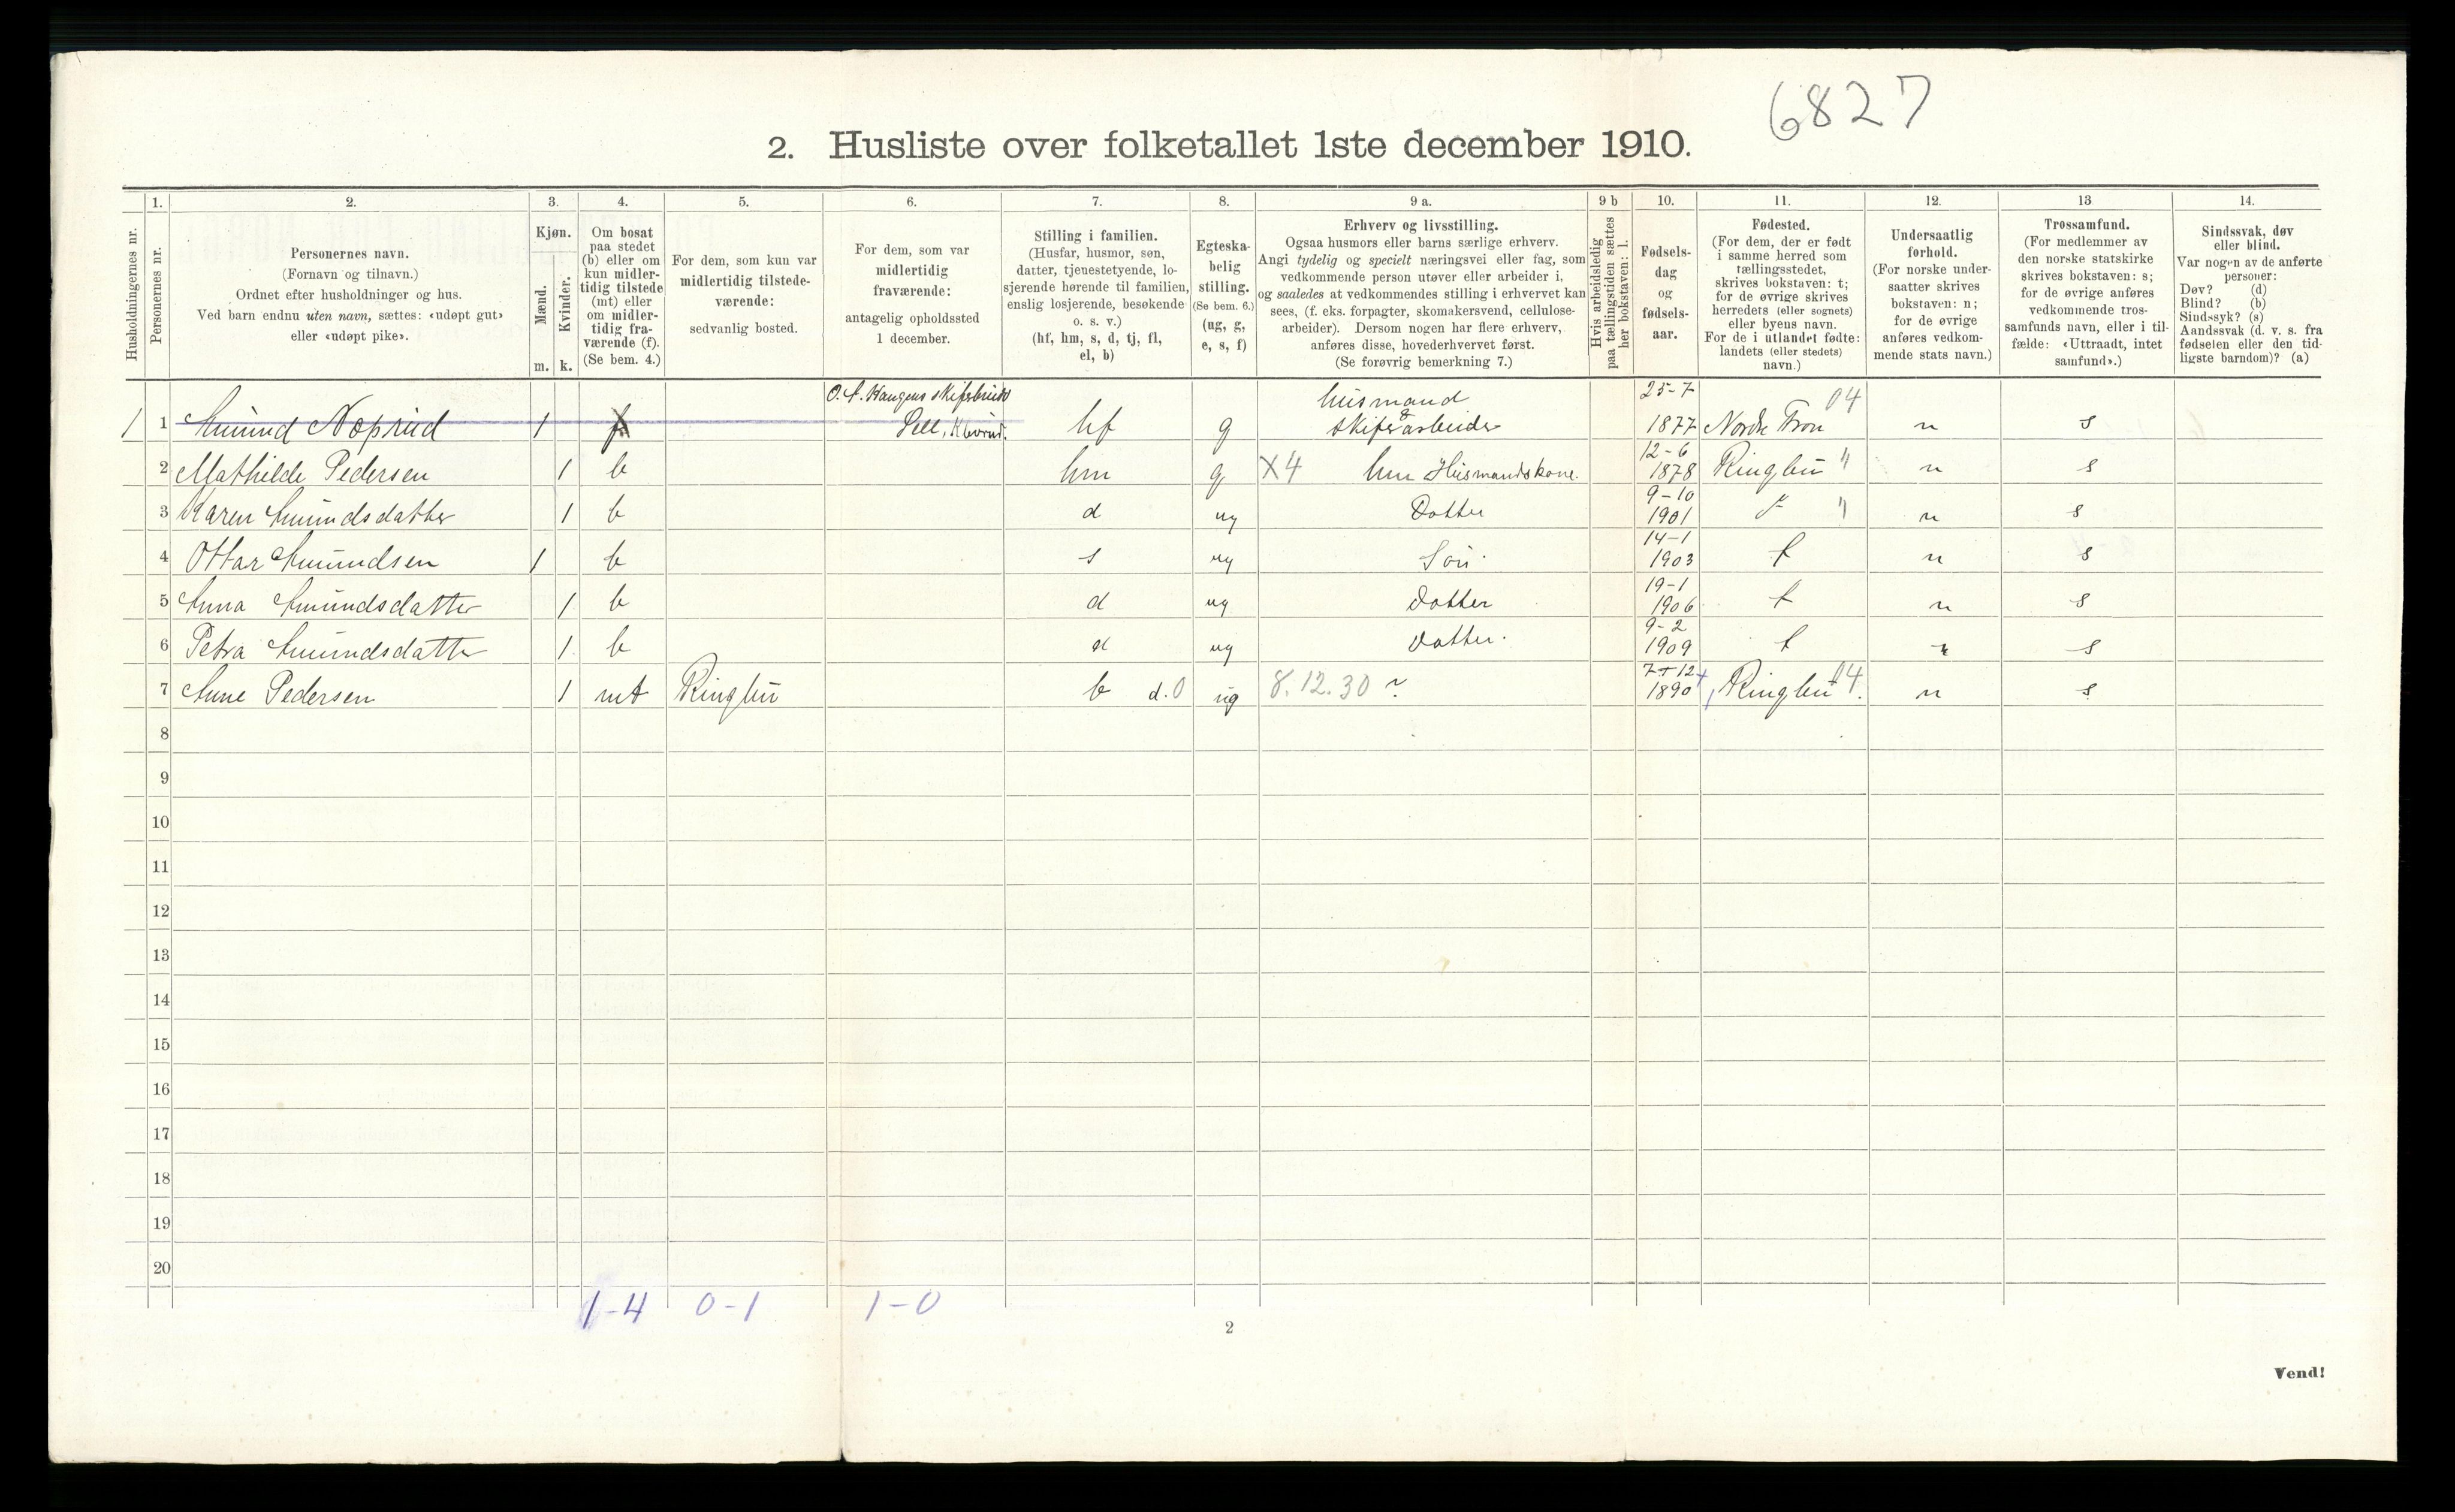 6827
2. Husliste over folketallet 1ste december 1910.
Husholdningernes nr.
1.
Personernes nr.
2.
Personernes navn.
(Fornavn og tilnavn.)
Ordnet efter husholdninger og hus.
Ved barn endnu uten navn, sættes: «udøpt gut»
eller «udøpt pike».
3.
Kjøn.
Mænd.
Kvinder.
m. k.
4.
Om bosat
paa stedet
(b) eller om
kun midler-
tidig tilstede
(mt) eller
om midler-
tidig fra-
værende (f).
(Se bem. 4.)
5.
For dem, som kun var
midlertidig tilstede-
værende:
sedvanlig bosted.
6.
For dem, som var
midlertidig
fraværende:
antagelig opholdssted
1 december.
7.
Stilling i familien.
(Husfar, husmor, søn,
datter, tjenestetyende, lo-
sjerende hørende til familien,
enslig losjerende, besøkende
o. s. v.)
(hf, hm, s, d, tj, fl,
el, b)
8.
Egteska-
belig
stilling.
(Se bem. 6.)
(ug, g,
e, s, f)
9 a.
Erhverv og livsstilling.
Ogsaa husmors eller barns særlige erhverv.
Angi tydelig og specielt næringsvei eller fag, som
vedkommende person utøver eller arbeider i,
og saaledes at vedkommendes stilling i erhvervet kan
sees, (f. eks. forpagter, skomakersvend, cellulose-
arbeider). Dersom nogen har flere erhverv,
anføres disse, hovederhvervet først.
(Se forøvrig bemerkning 7.)
9 b
Hvis arbeidsledig
paa tællingstiden sættes
her bokstaven: l.
10.
Fødsels-
dag
og
fødsels-
aar.
11.
Fødested.
(For dem, der er født
i samme herred som
tællingsstedet,
skrives bokstaven: t;
for de øvrige skrives
herredets (eller sognets)
eller byens navn.
For de i utlandet fødte:
landets (eller stedets)
navn.)
12.
Undersaatlig
forhold.
(For norske under-
saatter skrives
bokstaven: n;
for de øvrige
anføres vedkom-
mende stats navn.)
13
Trossamfund.
(For medlemmer av
den norske statskirke
skrives bokstaven: s;
for de øvrige anføres
vedkommende tros-
samfunds navn, eller i til-
fælde: «Uttraadt, intet
samfund».)
14.
Sindssvak, døv
eller blind.
Var nogen av de anførte
personer:
Døv? (d)
Blind? (b)
Sindssyk? (s)
Aandssvak (d. v. s. fra
fødselen eller den tid-
ligste barndom)? (a)
husmand 25-7 04
1 1 Amund Nøprud 1 f Sell, hf g & skiferarbeider 1877 Nordre Fron n s
12-6
2 Mathilde Pedersen 1 b hm g X4 hm Husmandskone. 1878 Ringbu " n s
9-10
3 Karen Amundsdatter 1 b d ug Datter 1901 " n s
14-1
4 Ottar Amundsen 1 b s ug Søn. 1903 t n s
19-1
5 Anna Amundsdatter 1 b d ug Datter 1906 t n s
9-2
6 Petra Amundsdatter 1 b d ug Datter. 1909 t n s
7-12
7 Anne Pedersen 1 mt Ringbu b d.0 ug 8.12.30 1890 Ringbu 04. n s
8
9
10
11
12
13
14
15
16
17
18
19
20
1-4 0-1 1-0
2
Vend!